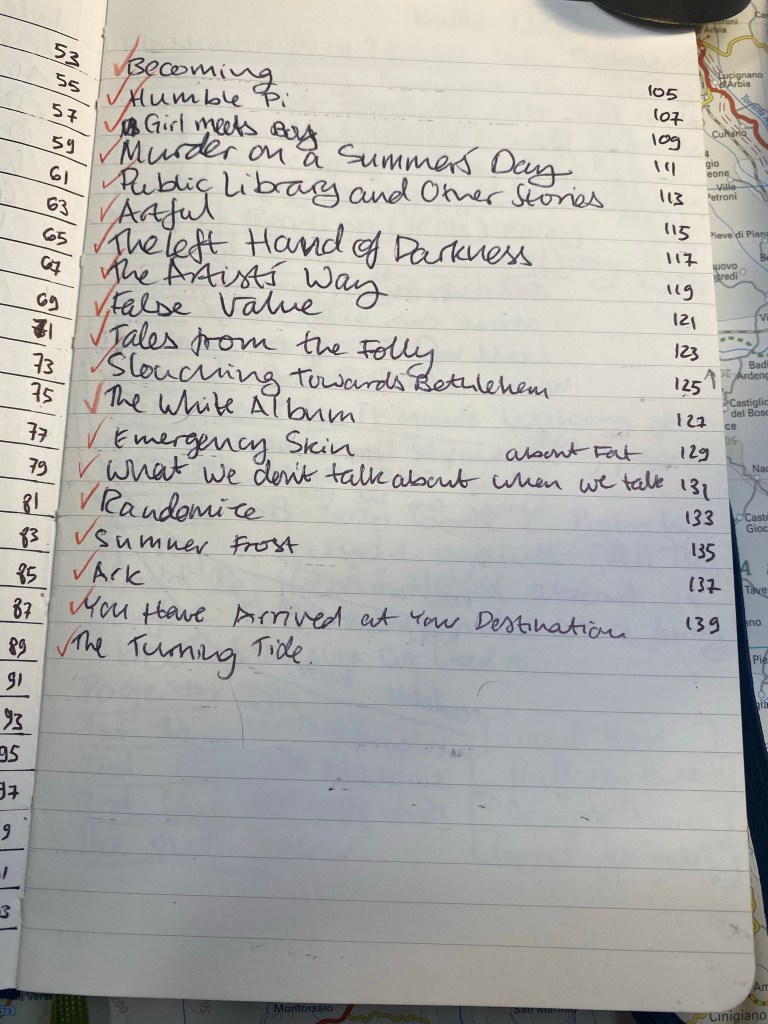 53
55
57
59
61
63
65
67
69
71
73
75
77
79
81
83
85
87
89
91
93
95
97
9
1
3
Becoming 105
Humble Pi 107
Girl meets Boy 109
Murder on a Summer's Day 111
Public Library and Other Stories 113
Artful 115
The Left Hand of Darkness 117
The Artist's Way 119
False Value 121
Tales from the Folly 123
Slouching Towards Bethlehem 125
The White Album 127
Emergency Skin 129
about Fat
What we don't talk about when we talk 131
Randomize 133
Summer Frost 135
Ark 137
You Have Arrived at Your Destination 139
The Turning Tide.
Lucignano
d'Arbia
Cuñano
Ville
Petroni
Pieve di Pian
Badi
Ardeng
Castiglio
del Bosc
Montorsaio
San Martino
Cinigiano